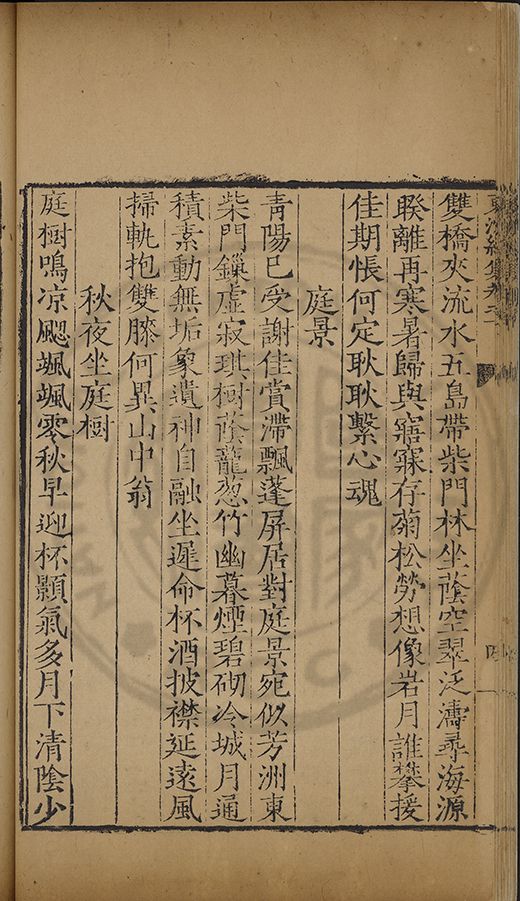 雙橋夾流水五島帶柴門林坐蔭空翠泛濤尋海源
暌離再寒暑歸與寤寐存菊松勞想像岩月誰攀援
佳期悵何定耿耿繫心魂
庭景
青陽已受謝佳賞滯飄蓬屏居對庭景宛似芳洲東
柴門鏁虛寂琪樹蔭蘢葱竹幽暮煙碧砌冷城月通
積素動無垢象遺神自融坐遲命杯酒披襟延遠風
掃軌抱雙膝何異山中翁
秋夜坐庭樹
庭樹鳴凉颸颯颯零秋早迎杯顥氣多月下清陰少